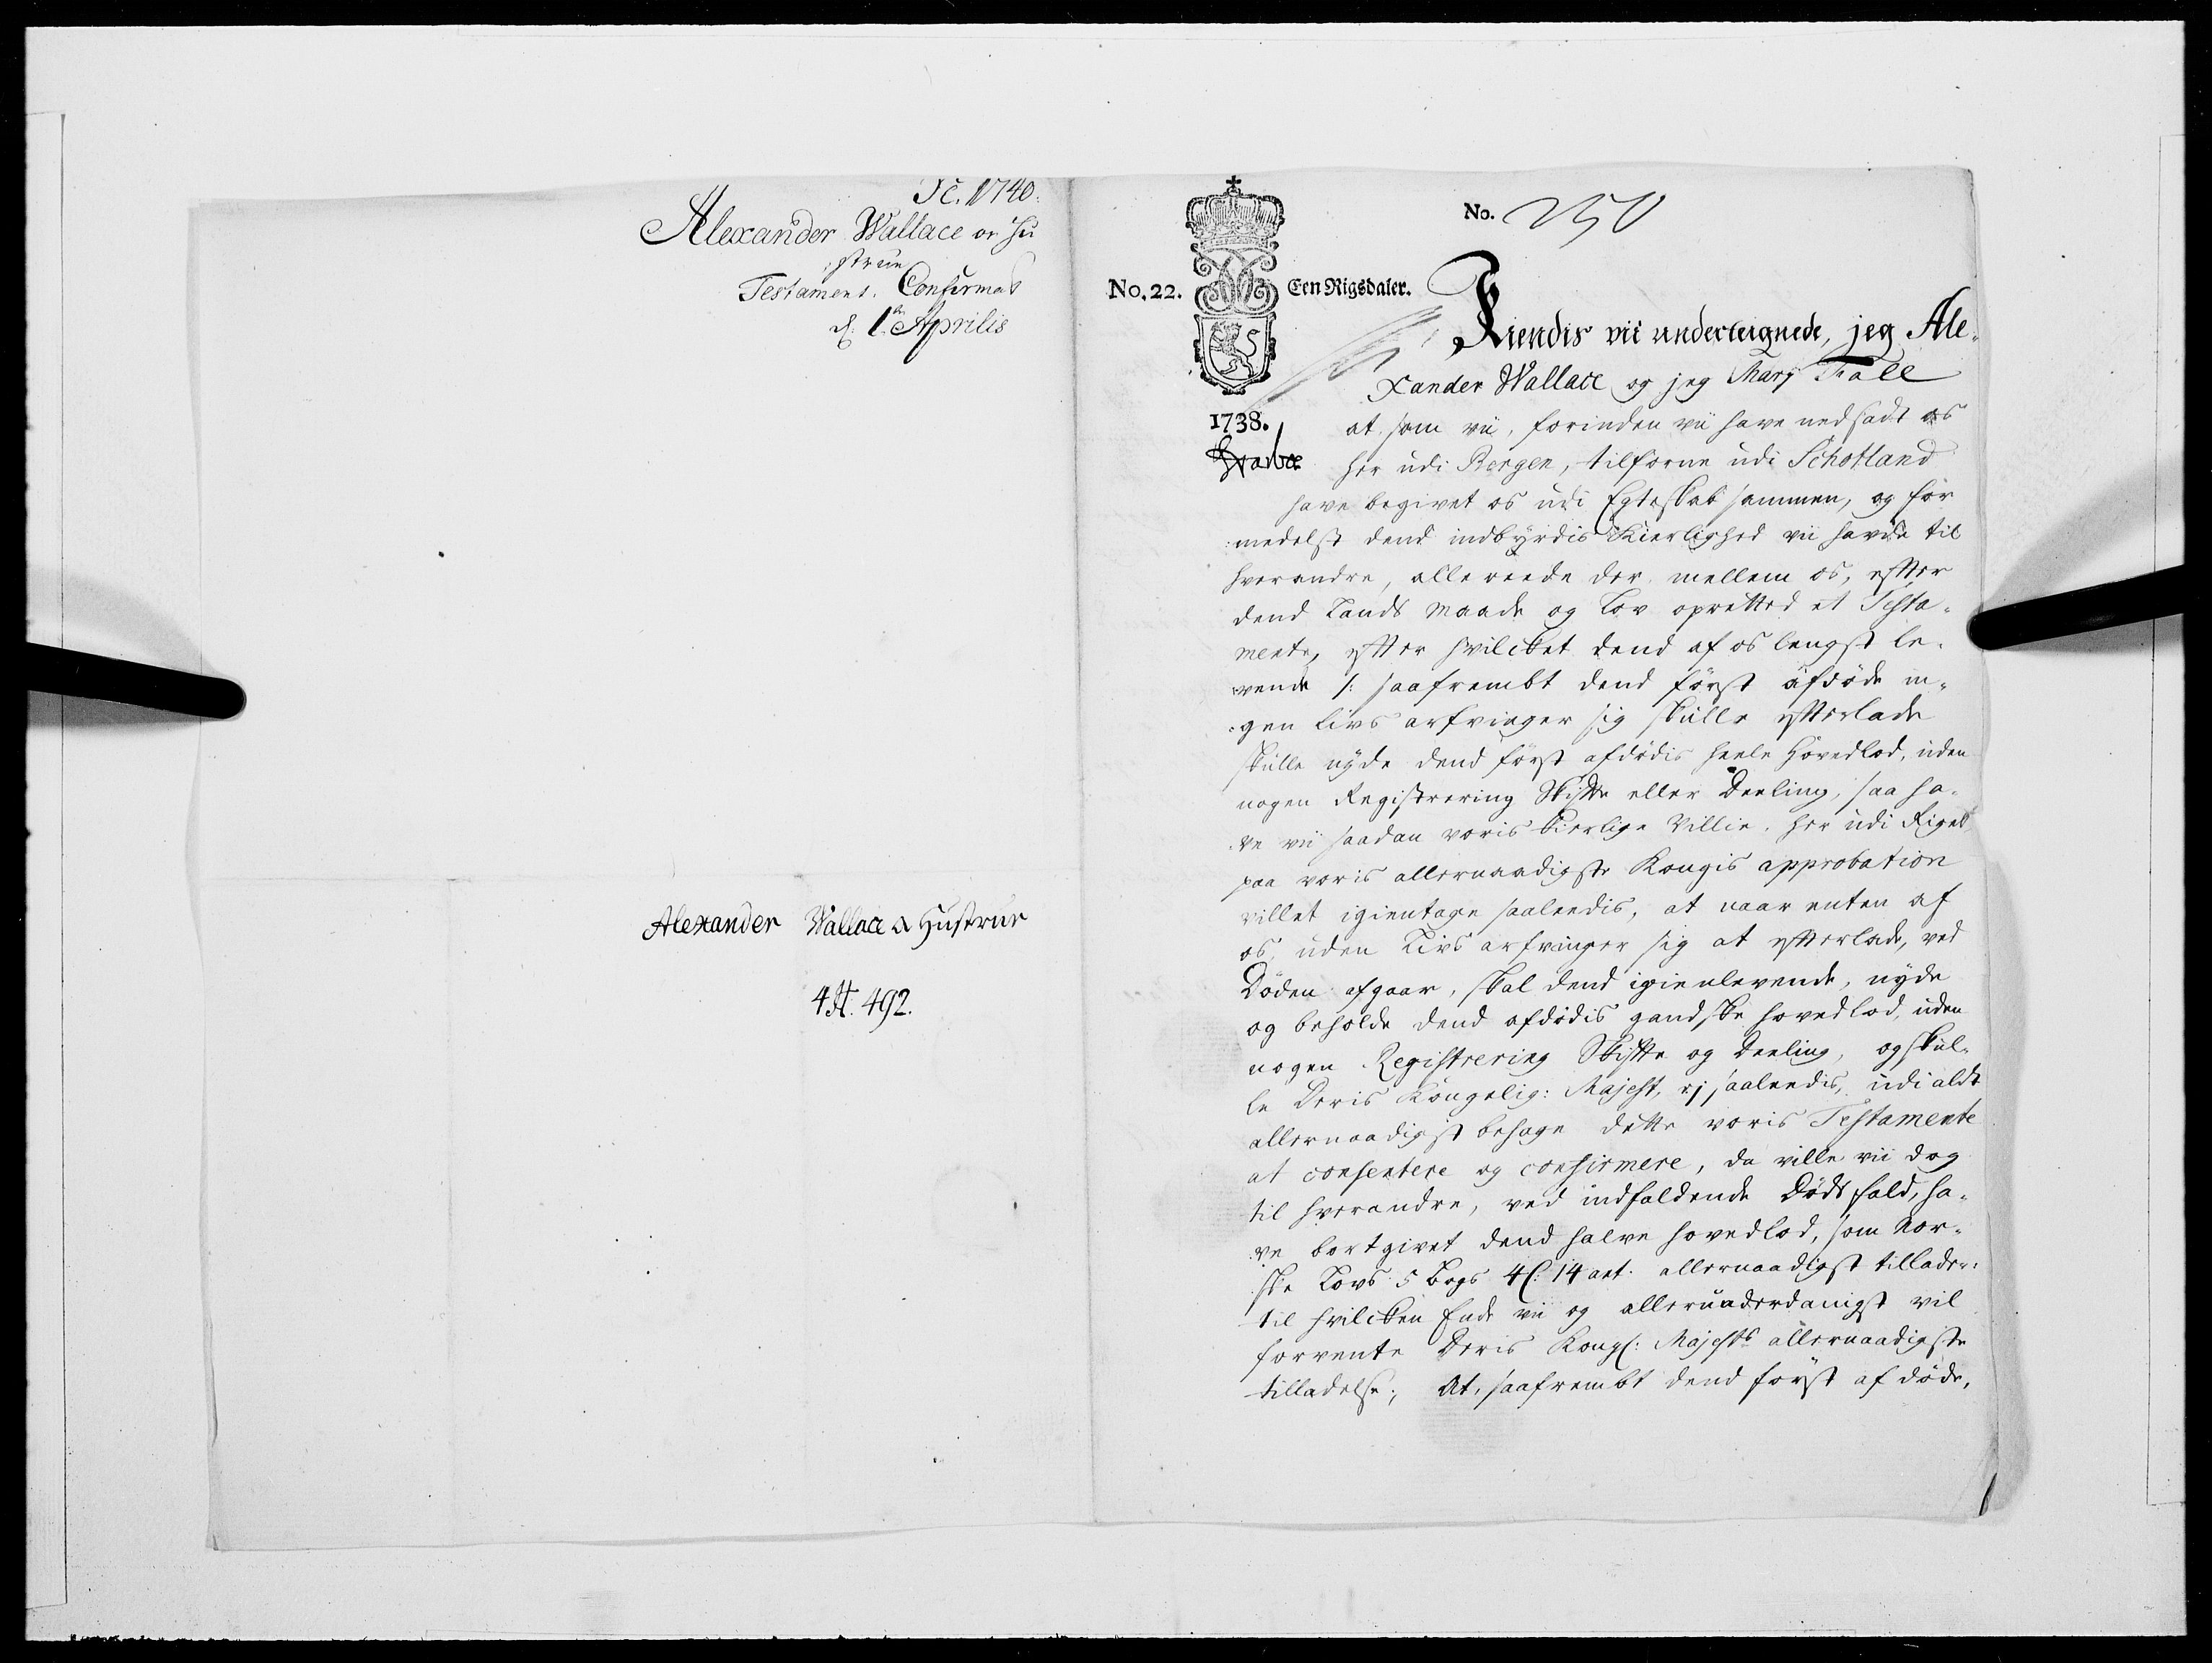 1740.
Alexander Wallace og Hu
strue
Testament. Confirmat
d. 1te Aprilis
Alexander Wallace & Hustrue
4 H. 492.
No. 250
No. 22. Een Rigsdaler.
Kiendis vii underteignede, jeg Ale-
xander Wallace og jeg Mary Fall
1738.
at som vii, forinden vii have nedsadt os
her udi Bergen, tilforne udi Schotland
have begivet os udi Egteskab sammen, og for
medelst dend indbyrdis Kierlighed vii havde til
hverandre, allereede der mellem os, efter
dend Lands Maade og Lov opretted et Testa-
mente, efter hvilcket dend af os lengst le-
vende /: saafrembt dend først afdøde in-
gen Livs arfvinger sig skulle efterlade
skulle nyde dend først afdødis heele Hovedlod, uden
nogen Registrering Skifte eller Deeling, saa ha-
ve vii saadan voris kierlige Villie, her udi Riget
paa voris allernaadigste Kongis approbation
villet igientage saaleedis, at naar enten af
os, uden Livs arfvinger sig at efterlade, ved
Døden afgaar, skal dend igienlevende, nyde
og beholde dend afdødis gandske hovedlod, uden
nogen Registrering Skifte og Deeling, og skul-
le Deris Kongelig: Majest, ej saaleedis, udi aldt
allernaadigst behage dette voris Testamente
at consentere og confirmere, da ville vii dog
til hverandre, ved indfaldende Dødsfald, ha-
ve bortgivet dend halve hovedlod, som Nor-
ske Lovs 5 Bogs 4 C: 14 art. allernaadigst tillader:
til hvilcken Ende vii og allerunderdanigst vil
forvente Deris Kongl: Majests allernaadigste
tilladelse; At, saafrembt dend først afdøde,